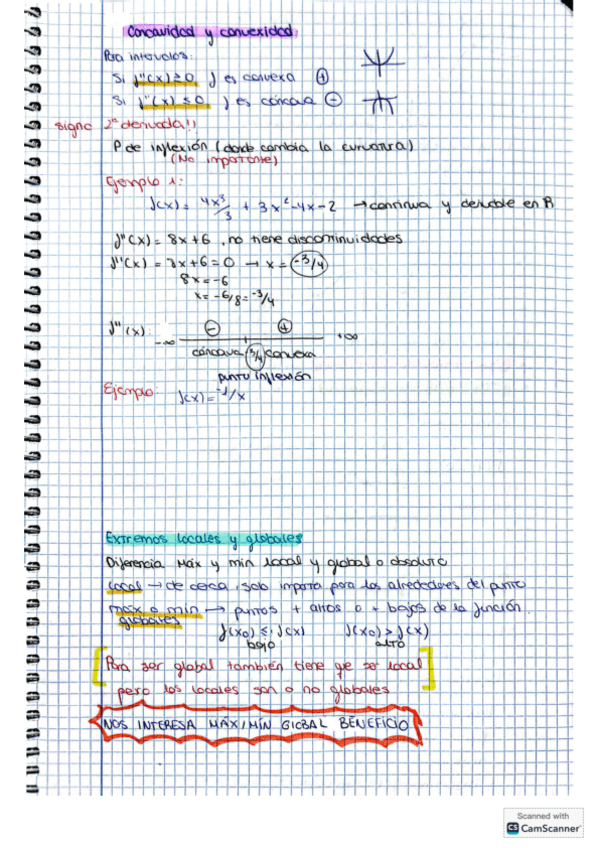 Concavidad y convexidad
Para intervalos:
Si f''(x) ≥ 0 f es convexa (+)
Si f''(x) ≤ 0 f es cóncava (-)
signo 2ª derivada!!
P de inflexión (donde cambia la curvatura)
(No importante)
Ejemplo 1:
f(x) = 4x³/3 + 3x² - 4x - 2 → continua y derivable en R
f''(x) = 8x + 6, no tiene discontinuidades
f''(x) = 8x + 6 = 0 → x = -3/4
8x = -6
x = -6/8 = -3/4
f''(x): (-) (+)
-∞ +∞
cóncava -3/4 convexa
punto inflexión
Ejemplo: f(x) = -1/x
Extremos locales y globales
Diferencia Máx y mín local y global o absoluto
Local → de cerca, solo importa para los alrededores del punto
máx o mín → puntos + altos o + bajos de la función.
globales
f(x₀) ≤ f(x) f(x₀) > f(x)
bajo alto
Para ser global también tiene qe ser local
pero los locales son o no globales
NOS INTERESA MÁX/MÍN GLOBAL BENEFICIO
Scanned with
CS CamScanner